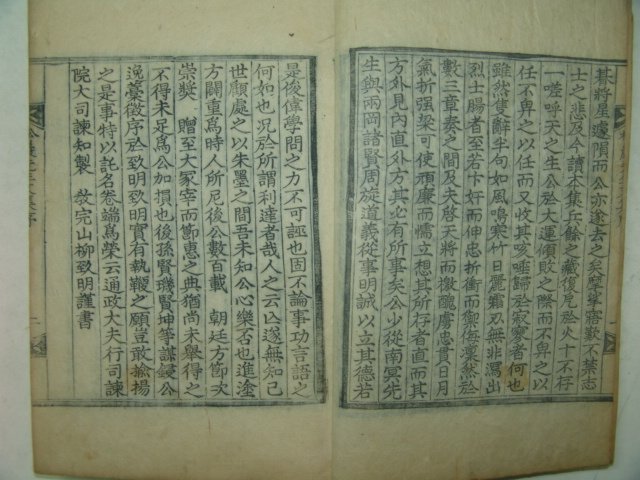 碁將星遽隕而公亦逡去之矣歷峯寤歎不禁志
士之悲及今讀本集丘餘之藏復厄於火十不存
一嗟呼天之生公於大運傾敗之際而不畀之以
任不畀之以任而又收其咳唾歸於寂寥者何也
雖然隻辭半句如風鳴寒竹日麗霜刃無非瀉出
烈士腸者至若卞奸而伸忠折衝而禦侮凜然於
數三章奏之間及夫啓天將而檄醜虜忠貫日月
氣折强梁可使頑廉而懦立想其所存者直而其
方外見內直外方其必有所事矣公少從南冥先
生與兩岡諸賢周旋道義從事明誠以立其德若
是俊偉學問之力不可誣也固不論事功言語之
何如也况於所謂利達者哉人之云公遂無知己
世顧處之以朱墨之間吾未知公心樂否也進塗
方闢重爲時人所尼後公數百載 朝廷方節次
崇奬 贈至大冢宰而節惠之典猶尙未舉得之
不得未足爲公加損也後孫賢璣賢坤等謀錄公
逸藁徵序於致明致明實有執鞭之願豈敢揄揚
之是事特以託名卷端爲榮云通政大夫行司諫
院大司諫知製 敎完山柳致明謹書